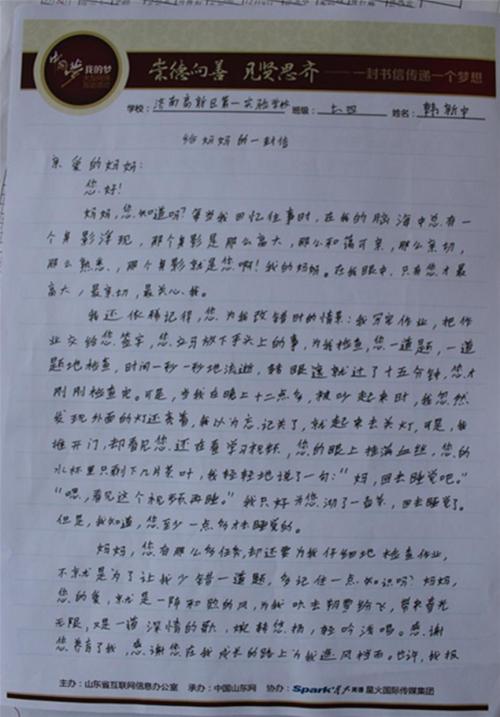 中国梦 我的梦
崇德向善 见贤思齐 —— 一封书信传递一个梦想
学校：济南高新区第一实验学校 班级：七四 姓名：韩新宇
给妈妈的一封信
亲爱的妈妈：
您好！
妈妈，您知道吗？每当我回忆往事时，在我的脑海中总有一
个身影浮现，那个身影是那么高大，那么和蔼可亲，那么亲切，
那么熟悉，那个身影就是您啊！我的妈妈。在我眼中，只有您才最
高大，最亲切，最关心我。
我还依稀记得，您为我改错时的情景：我写完作业，把作
业交给您签字，您立马放下手头上的事，为我检查，您一道题，一道
题地检查，时间一秒一秒地流逝，转眼这就过了十五分钟，您才
刚刚检查完。可是，当我在晚上十二点多，被吵起来时，我忽然
发现外面的灯还亮着，我以为忘记关了，就起来去关灯，可是，我
推开门，却看见您还在看学习视频，您的眼上推满血丝，您的
水杯里只剩下几片茶叶，我轻轻地说了一句：“妈，回去睡觉吧。”
“嗯，看完这个视频再睡。”我只好为您沏了一壶茶，回去睡觉了。
但是，我知道，您至少一点多才去睡觉的。
妈妈，您有那么多任务，却还要为我仔细地检查作业，
不就是为了让我少错一道题，多记住一点知识吗？妈妈，
您的爱，就是一阵和煦的风，为我吹去朝霞纷飞，带来春光
无限，又是一首深情的歌，婉转悠扬，轻吟浅唱。感谢
您养育了我，感谢您在我成长的路上为我遮风挡雨。也许，我报
主办：山东省互联网信息办公室 承办：中国山东网 协办：Spark星火英语 星火国际传媒集团